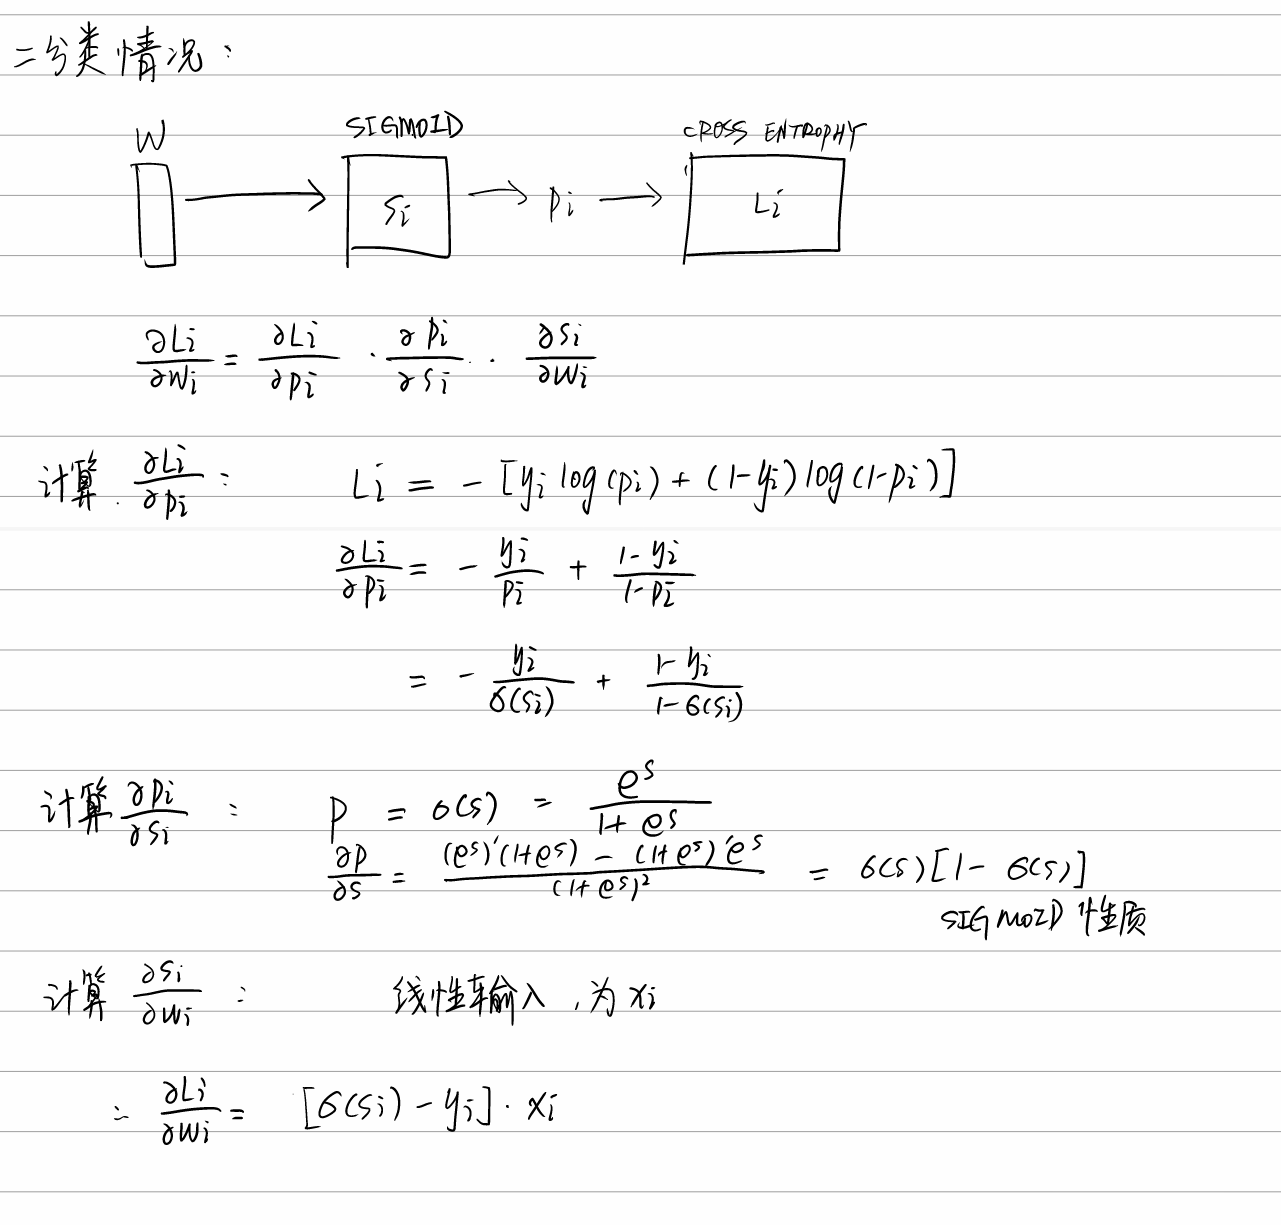 二分类情况：
W SIGMOID CROSS ENTROPHY
Si → pi → Li
∂Li/∂Wi = ∂Li/∂pi · ∂pi/∂si · ∂si/∂wi
计算 ∂Li/∂pi : Li = - [yi log(pi) + (1-yi) log(1-pi)]
∂Li/∂pi = - yi/pi + (1-yi)/(1-pi)
= - yi/σ(si) + (1-yi)/(1-σ(si))
计算 ∂pi/∂si : P = σ(s) = e^s/(1+e^s)
∂p/∂s = ((e^s)'(1+e^s) - (1+e^s)'e^s)/(1+e^s)^2 = σ(s)[1-σ(s)]
SIGMOID 性质
计算 ∂si/∂wi : 线性输入，为 xi
∴ ∂Li/∂wi = [σ(si) - yi] · xi